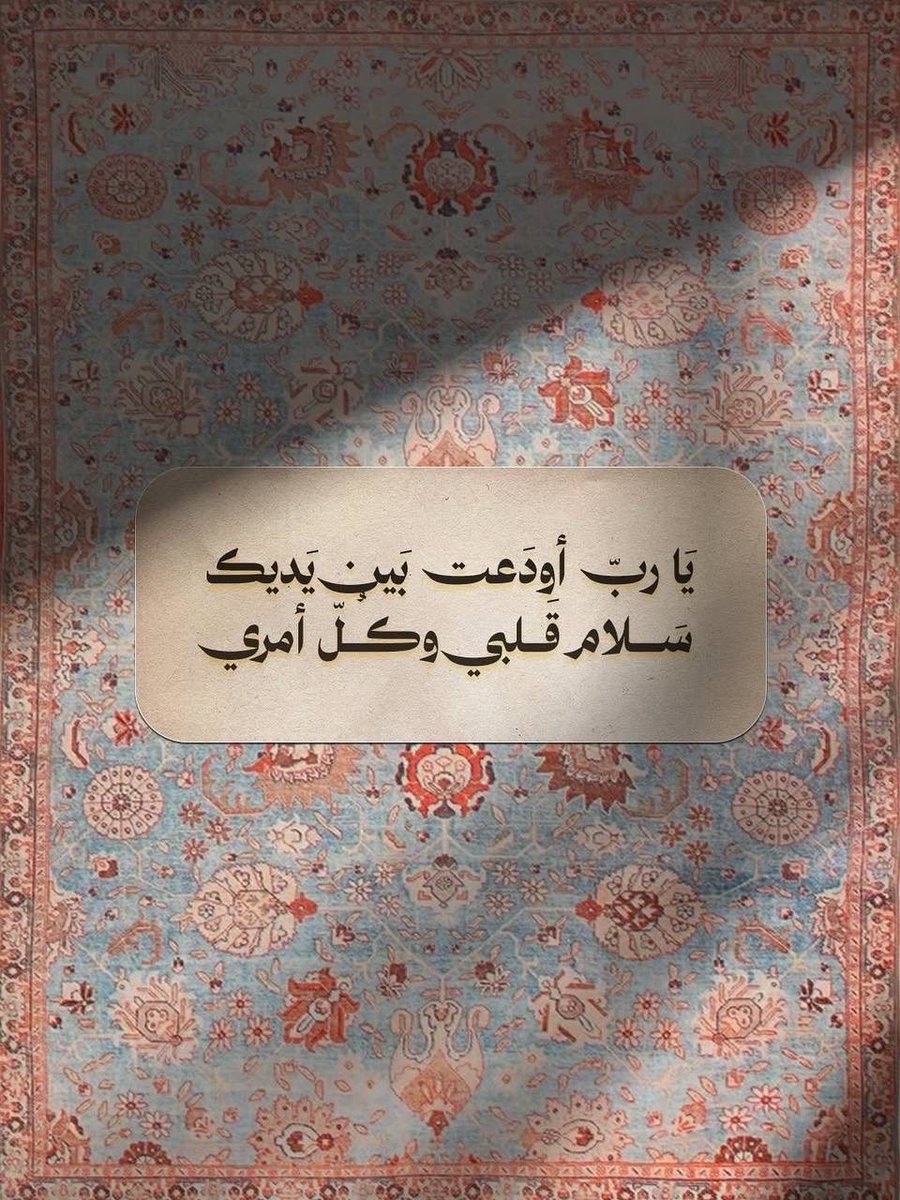 يَا ربّ أودَعت بَين يَديك
سَلام قَلبي وكُلّ أمري